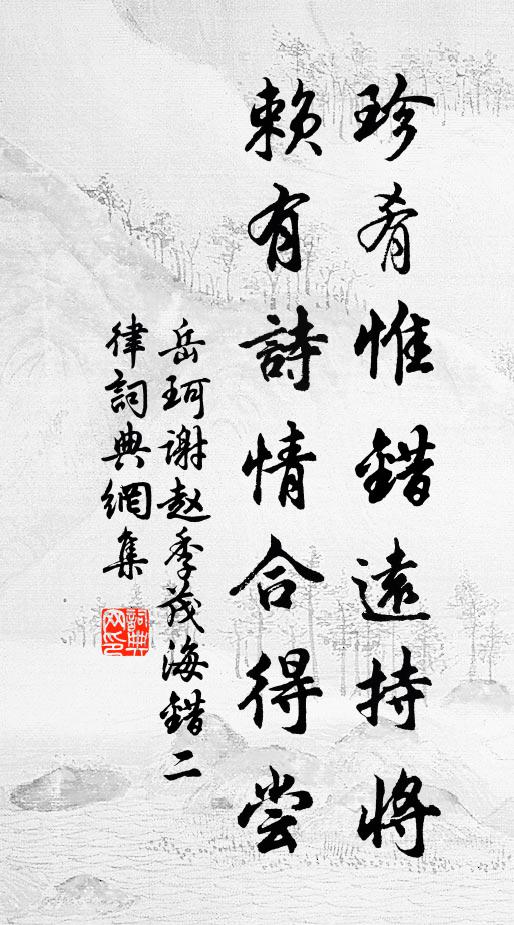 珍肴惟錯遠持將
賴有詩情合得尝
岳珂谢赵季茂海錯二
律詞典網集
詞典
网印